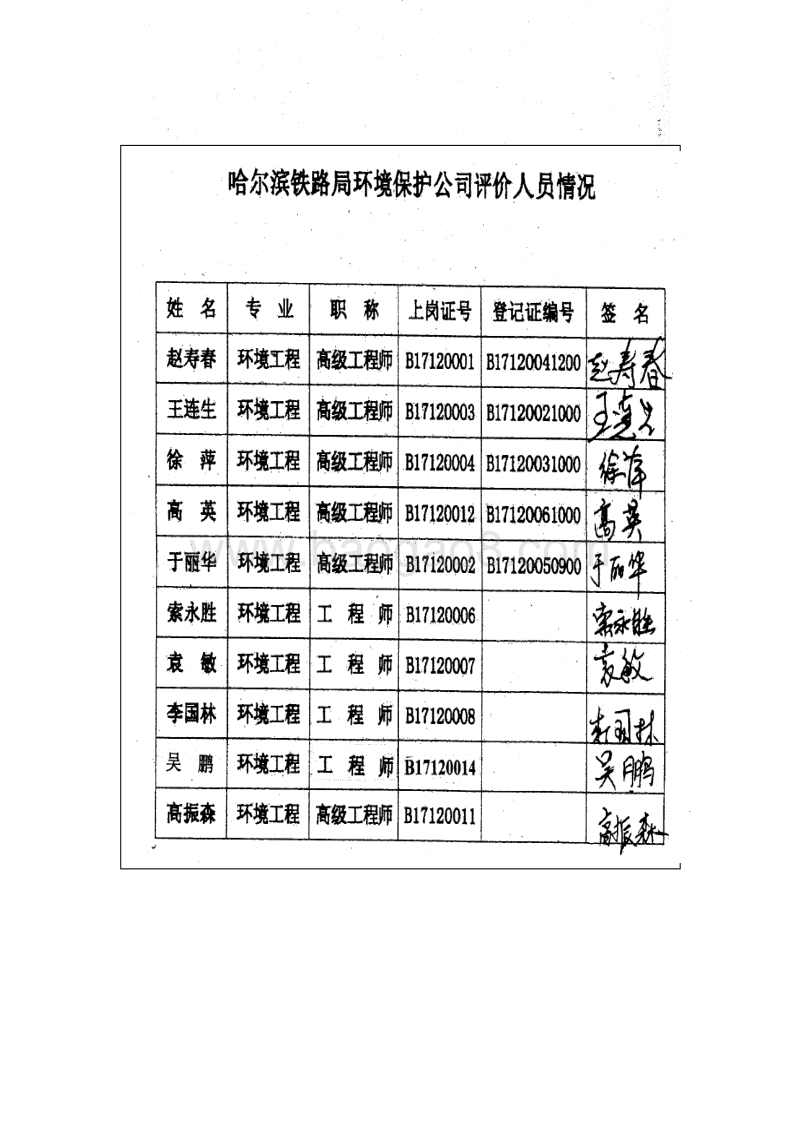 哈尔滨铁路局环境保护公司评价人员情况
姓 名 专 业 职 称 上岗证号 登记证编号 签 名
赵寿春 环境工程 高级工程师 B17120001 B17120041200 赵寿春
王连生 环境工程 高级工程师 B17120003 B17120021000 王连生
徐 萍 环境工程 高级工程师 B17120004 B17120031000 徐萍
高 英 环境工程 高级工程师 B17120012 B17120061000 高英
于丽华 环境工程 高级工程师 B17120002 B17120050900 于丽华
索永胜 环境工程 工 程 师 B17120006 索永胜
袁 敏 环境工程 工 程 师 B17120007 袁敏
李国林 环境工程 工 程 师 B17120008 李国林
吴 鹏 环境工程 工 程 师 B17120014 吴鹏
高振森 环境工程 高级工程师 B17120011 高振森